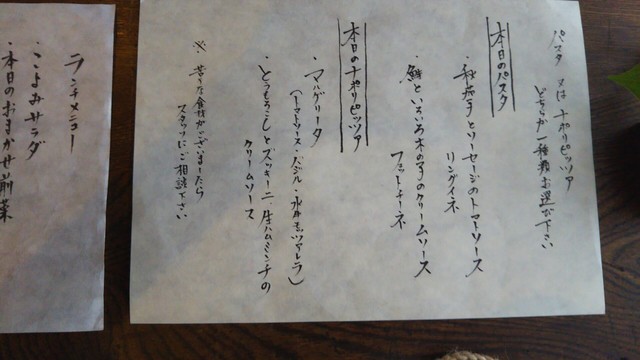 パスタ 又は ナポリピッツァ
どちらか一種類お選び下さい
本日のパスタ
・秋茄子とソーセージのトマトソース
リングイネ
・鮭といろいろ木の子のクリームソース
フェットチーネ
本日のナポリピッツァ
・マルゲリータ
(トマトソース・バジル・水牛モッツァレラ)
・とうもろこしとズッキーニ、生ハムミンチの
クリームソース
※ 苦手な食材がございましたら
スタッフにご相談下さい
ランチメニュー
・こよみサラダ
・本日のおまかせ前菜